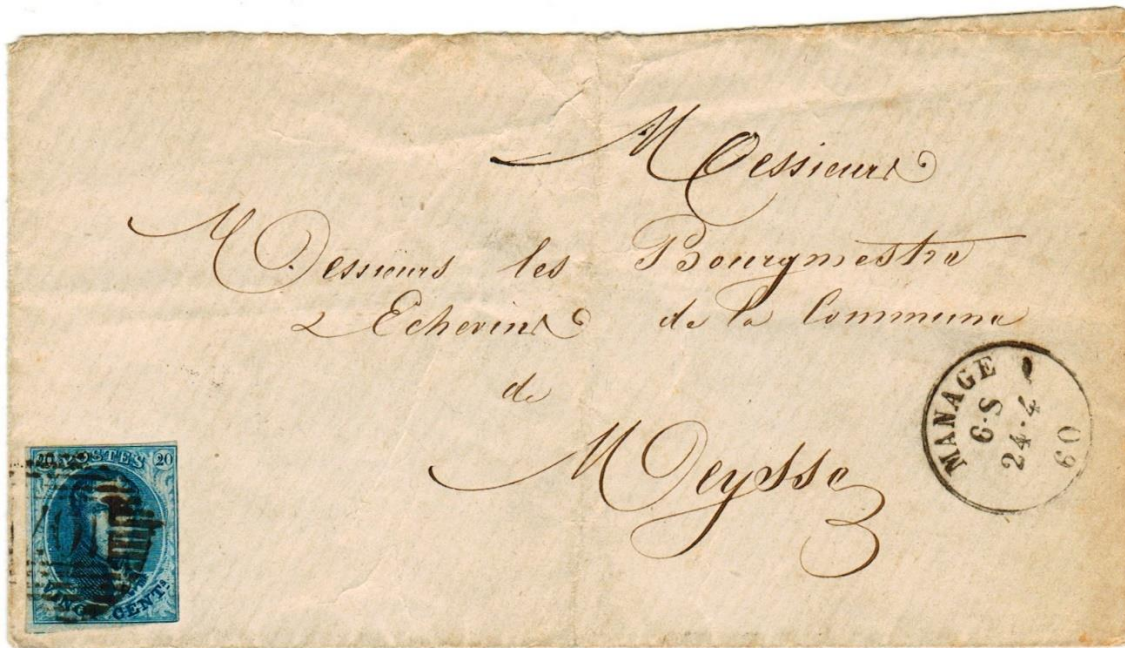 Messieurs
Messieurs les Bourgmestre
& Echevins de la Commune
de
Meysse
MANAGE
6·S
24·4
60
20 POSTES 20
VINGT CENTS